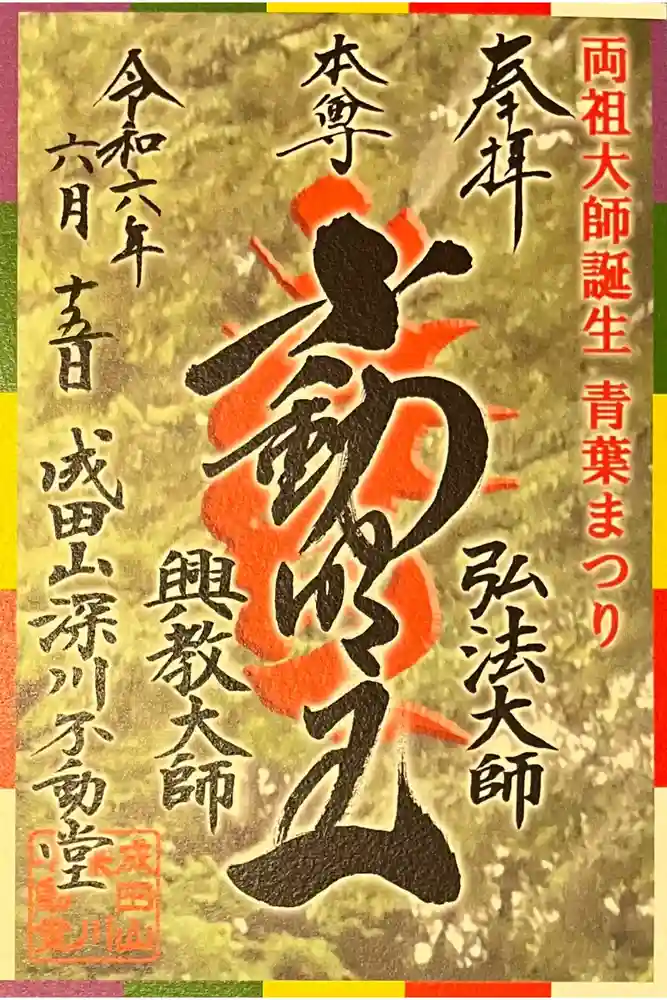 両祖大師誕生 青葉まつり
奉拝
弘法大師
本尊
不動明王
興教大師
令和六年
六月 十五日
成田山深川不動堂